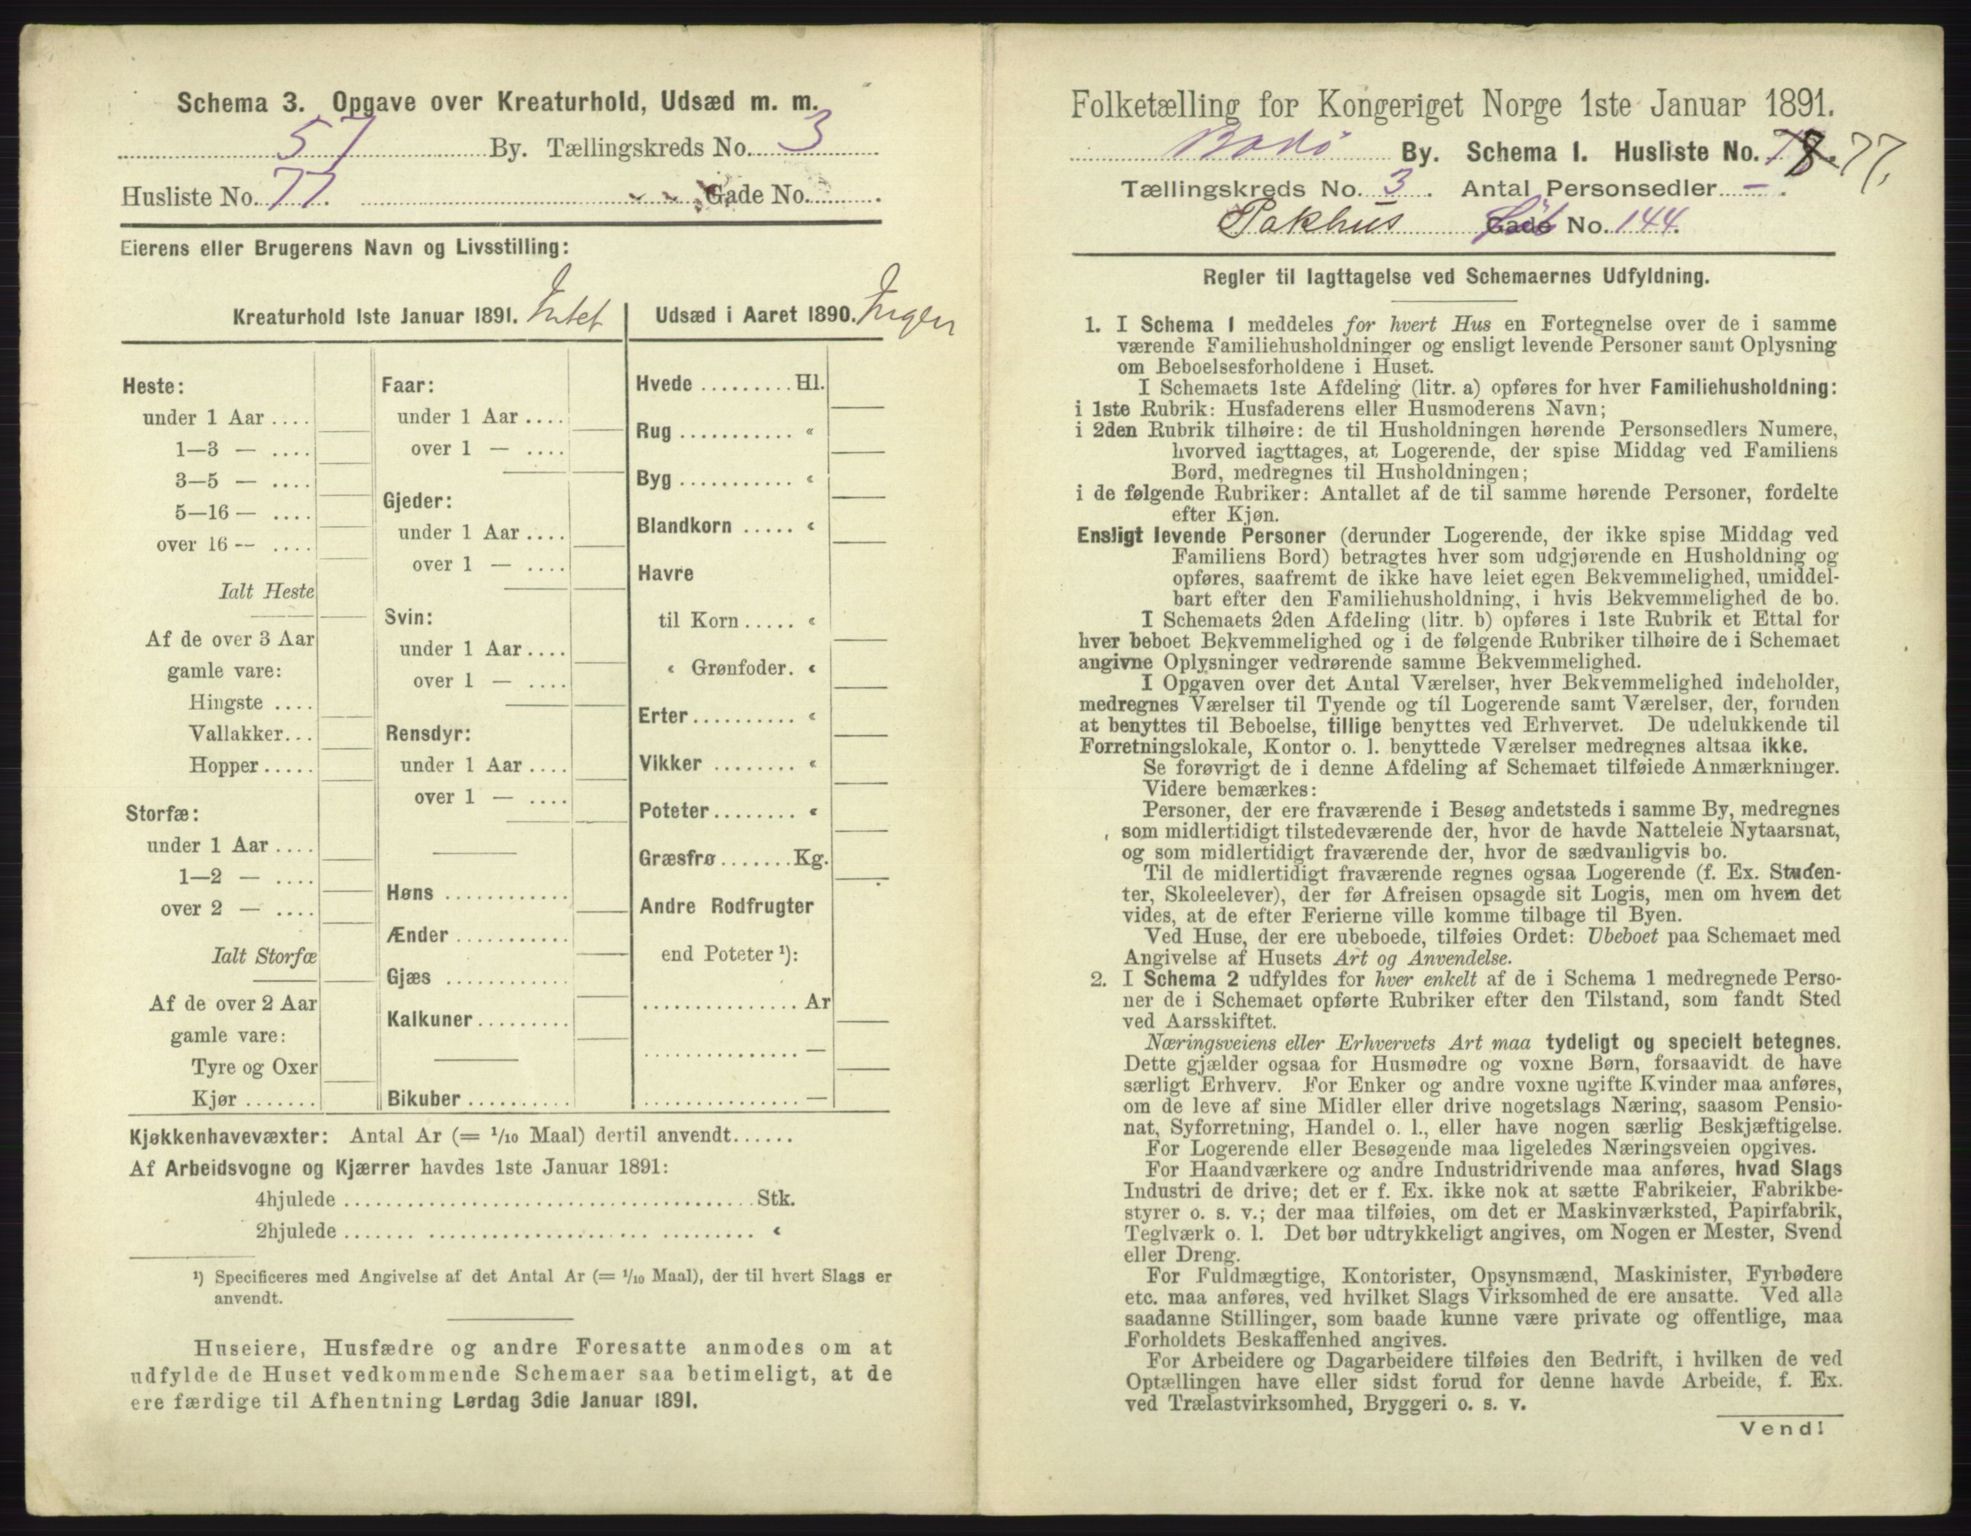 Schema 3. Opgave over Kreaturhold, Udsæd m. m.
57 By. Tællingskreds No. 3
Husliste No. 77. Gade No.
Eierens eller Brugerens Navn og Livsstilling:
Kreaturhold 1ste Januar 1891. Intet
Heste:
under 1 Aar ....
1—3 — ....
3—5 — ....
5—16 — ....
over 16 — ....
Ialt Heste
Af de over 3 Aar
gamle vare:
Hingste ....
Vallakker...
Hopper.....
Storfæ:
under 1 Aar ....
1—2 — ....
over 2 — ....
Ialt Storfæ
Af de over 2 Aar
gamle vare:
Tyre og Oxer
Kjør .......
Faar:
under 1 Aar ....
over 1 — ....
Gjeder:
under 1 Aar ....
over 1 — ....
Svin:
under 1 Aar ....
over 1 — ....
Rensdyr:
under 1 Aar ....
over 1 — ....
Høns ............
Ænder ...........
Gjæs ............
Kalkuner.........
Bikuber ..........
Udsæd i Aaret 1890. Ingen
Hvede ......... Hl.
Rug ........... «
Byg ........... «
Blandkorn ..... «
Havre
til Korn ..... «
« Grønfoder. «
Erter.......... «
Vikker ........ «
Poteter........ «
Græsfrø ....... Kg.
Andre Rodfrugter
end Poteter ¹):
............... Ar
............... —
............... —
Kjøkkenhavevæxter: Antal Ar (= 1/10 Maal) dertil anvendt......
Af Arbeidsvogne og Kjærrer havdes 1ste Januar 1891:
4hjulede ..................................... Stk.
2hjulede ..................................... «
¹) Specificeres med Angivelse af det Antal Ar (= 1/10 Maal), der til hvert Slags er
anvendt.
Huseiere, Husfædre og andre Foresatte anmodes om at
udfylde de Huset vedkommende Schemaer saa betimeligt, at de
ere færdige til Afhentning Lørdag 3die Januar 1891.
Folketælling for Kongeriget Norge 1ste Januar 1891.
Bodö By. Schema 1. Husliste No. 77.
Tællingskreds No. 3. Antal Personsedler —.
Pakhus Gade No. 144.
Regler til Iagttagelse ved Schemaernes Udfyldning.
1. I Schema 1 meddeles for hvert Hus en Fortegnelse over de i samme
værende Familiehusholdninger og ensligt levende Personer samt Oplysning
om Beboelsesforholdene i Huset.
I Schemaets 1ste Afdeling (litr. a) opføres for hver Familiehusholdning:
i 1ste Rubrik: Husfaderens eller Husmoderens Navn;
i 2den Rubrik tilhøire: de til Husholdningen hørende Personsedlers Numere,
hvorved iagttages, at Logerende, der spise Middag ved Familiens
Bord, medregnes til Husholdningen;
i de følgende Rubriker: Antallet af de til samme hørende Personer, fordelte
efter Kjøn.
Ensligt levende Personer (derunder Logerende, der ikke spise Middag ved
Familiens Bord) betragtes hver som udgjørende en Husholdning og
opføres, saafremt de ikke have leiet egen Bekvemmelighed, umiddel-
bart efter den Familiehusholdning, i hvis Bekvemmelighed de bo.
I Schemaets 2den Afdeling (litr. b) opføres i 1ste Rubrik et Ettal for
hver beboet Bekvemmelighed og i de følgende Rubriker tilhøire de i Schemaet
angivne Oplysninger vedrørende samme Bekvemmelighed.
I Opgaven over det Antal Værelser, hver Bekvemmelighed indeholder,
medregnes Værelser til Tyende og til Logerende samt Værelser, der, foruden
at benyttes til Beboelse, tillige benyttes ved Erhvervet. De udelukkende til
Forretningslokale, Kontor o. l. benyttede Værelser medregnes altsaa ikke.
Se forøvrigt de i denne Afdeling af Schemaet tilføiede Anmærkninger.
Videre bemærkes:
Personer, der ere fraværende i Besøg andetsteds i samme By, medregnes
som midlertidigt tilstedeværende der, hvor de havde Natteleie Nytaarsnat,
og som midlertidigt fraværende der, hvor de sædvanligvis bo.
Til de midlertidigt fraværende regnes ogsaa Logerende (f. Ex. Studen-
ter, Skoleelever), der før Afreisen opsagde sit Logis, men om hvem det
vides, at de efter Ferierne ville komme tilbage til Byen.
Ved Huse, der ere ubeboede, tilføies Ordet: Ubeboet paa Schemaet med
Angivelse af Husets Art og Anvendelse.
2. I Schema 2 udfyldes for hver enkelt af de i Schema 1 medregnede Perso-
ner de i Schemaet opførte Rubriker efter den Tilstand, som fandt Sted
ved Aarsskiftet.
Næringsveiens eller Erhvervets Art maa tydeligt og specielt betegnes.
Dette gjælder ogsaa for Husmødre og voxne Børn, forsaavidt de have
særligt Erhverv. For Enker og andre voxne ugifte Kvinder maa anføres,
om de leve af sine Midler eller drive nogetslags Næring, saasom Pensio-
nat, Syforretning, Handel o. l., eller have nogen særlig Beskjæftigelse.
For Logerende eller Besøgende maa ligeledes Næringsveien opgives.
For Haandværkere og andre Industridrivende maa anføres, hvad Slags
Industri de drive; det er f. Ex. ikke nok at sætte Fabrikeier, Fabrikbe-
styrer o. s. v.; der maa tilføies, om det er Maskinværksted, Papirfabrik,
Teglværk o. l. Det bør udtrykkeligt angives, om Nogen er Mester, Svend
eller Dreng.
For Fuldmægtige, Kontorister, Opsynsmænd, Maskinister, Fyrbødere
etc. maa anføres, ved hvilket Slags Virksomhed de ere ansatte. Ved alle
saadanne Stillinger, som baade kunne være private og offentlige, maa
Forholdets Beskaffenhed angives.
For Arbeidere og Dagarbeidere tilføies den Bedrift, i hvilken de ved
Optællingen have eller sidst forud for denne havde Arbeide, f. Ex.
ved Trælastvirksomhed, Bryggeri o. s. v.
Vend!